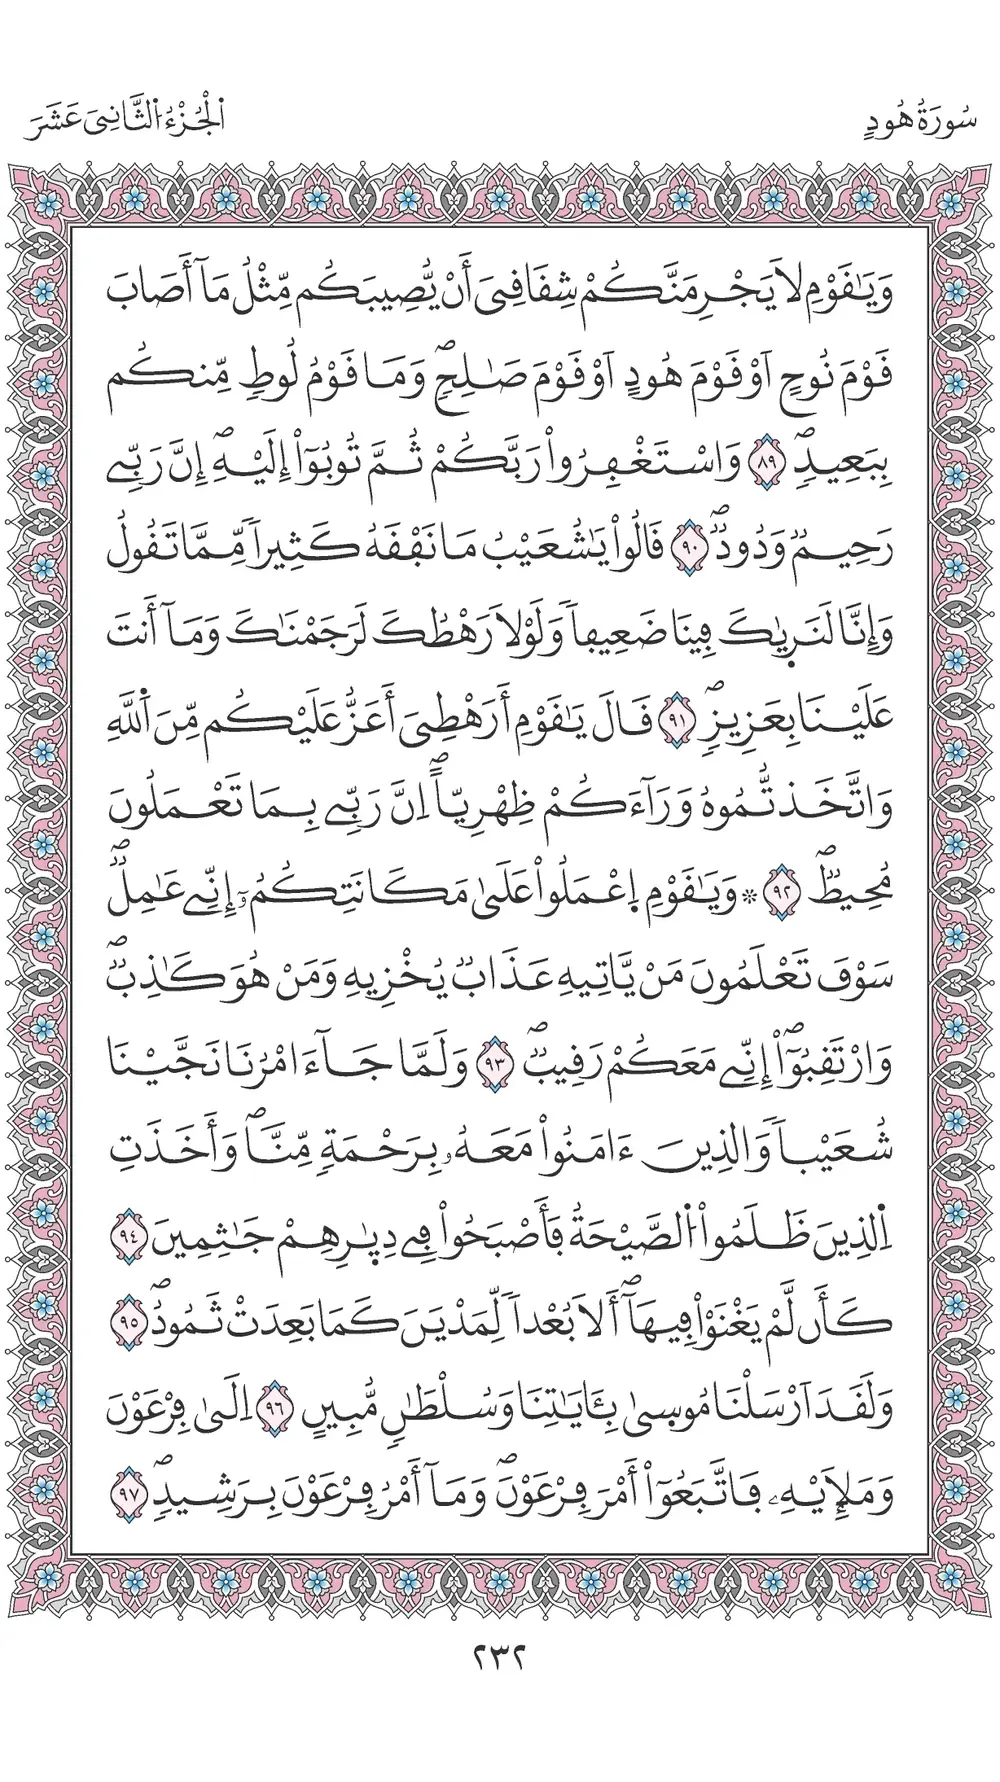 سُورَةُ هُودٍ
اُ۬لْجُزْءُ اُ۬لثَّانِيَ عَشَرَ
وَيَٰقَوْمِ لَا يَجْرِمَنَّكُمْ شِقَاقِيَ أَنْ يُّصِيبَكُم مِّثْلُ مَآ أَصَابَ
قَوْمَ نُوحٍ اَوْ قَوْمَ هُودٍ اَوْ قَوْمَ صَٰلِحٖۖ وَمَا قَوْمُ لُوطٖ مِّنكُم
بِبَعِيدٖۖ ٨٩ وَاسْتَغْفِرُواْ رَبَّكُمْ ثُمَّ تُوبُوٓاْ إِلَيْهِۖ إِنَّ رَبِّے
رَحِيمٞ وَدُودٞۖ ٩٠ قَالُواْ يَٰشُعَيْبُ مَا نَفْقَهُ كَثِيراٗ مِّمَّا تَقُولُ
وَإِنَّا لَنَر۪يٰكَ فِينَا ضَعِيفاٗ وَلَوْلَا رَهْطُكَ لَرَجَمْنَٰكَ وَمَآ أَنتَ
عَلَيْنَا بِعَزِيزٖۖ ٩١ قَالَ يَٰقَوْمِ أَرَهْطِيَ أَعَزُّ عَلَيْكُم مِّنَ اَ۬للَّهِ
وَاتَّخَذتُّمُوهُ وَرَآءَكُمْ ظِهْرِيّاًۖ اِنَّ رَبِّے بِمَا تَعْمَلُونَ
مُحِيطٞۖ ٩٢ ۞ وَيَٰقَوْمِ اِ۪عْمَلُواْ عَلَىٰ مَكَانَتِكُمُۥٓ إِنِّے عَٰمِلٞۖ
سَوْفَ تَعْلَمُونَ مَنْ يَّاتِيهِ عَذَابٞ يُخْزِيهِ وَمَنْ هُوَ كَٰذِبٞۖ
وَارْتَقِبُوٓاْۖ إِنِّے مَعَكُمْ رَقِيبٞۖ ٩٣ وَلَمَّا جَآءَ امْرُنَا نَجَّيْنَا
شُعَيْباٗ وَالذِينَ ءَامَنُواْ مَعَهُۥ بِرَحْمَةٖ مِّنَّاۖ وَأَخَذَتِ
اِ۬لذِينَ ظَلَمُواْ اُ۬لصَّيْحَةُ فَأَصْبَحُواْ فِے دِيٰ۪رِهِمْ جَٰثِمِينَ ٩٤
كَأَن لَّمْ يَغْنَوْاْ فِيهَآۖ أَلَا بُعْداٗ لِّمَدْيَنَ كَمَا بَعِدَتْ ثَمُودُۖ ٩٥
وَلَقَدَ اَرْسَلْنَا مُوس۪ىٰ بِـَٔايَٰتِنَا وَسُلْطَٰنٖ مُّبِينٍ ٩٦ اِلَىٰ فِرْعَوْنَ
وَمَلَإِيْهِۦ فَاتَّبَعُوٓاْ أَمْرَ فِرْعَوْنَۖ وَمَآ أَمْرُ فِرْعَوْنَ بِرَشِيدٖۖ ٩٧
٢٣٢